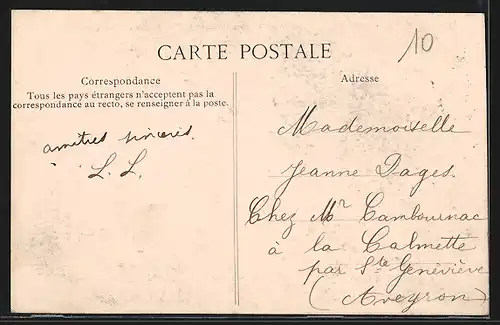 10
CARTE POSTALE
Correspondance
Tous les pays étrangers n'acceptent pas la
correspondance au recto, se renseigner à la poste.
amitiés sincères.
L. L.
Adresse
Mademoiselle
Jeanne Pages.
Chez Mr Cambournac
à la Calmette
par Ste Geneviève
(Aveyron)